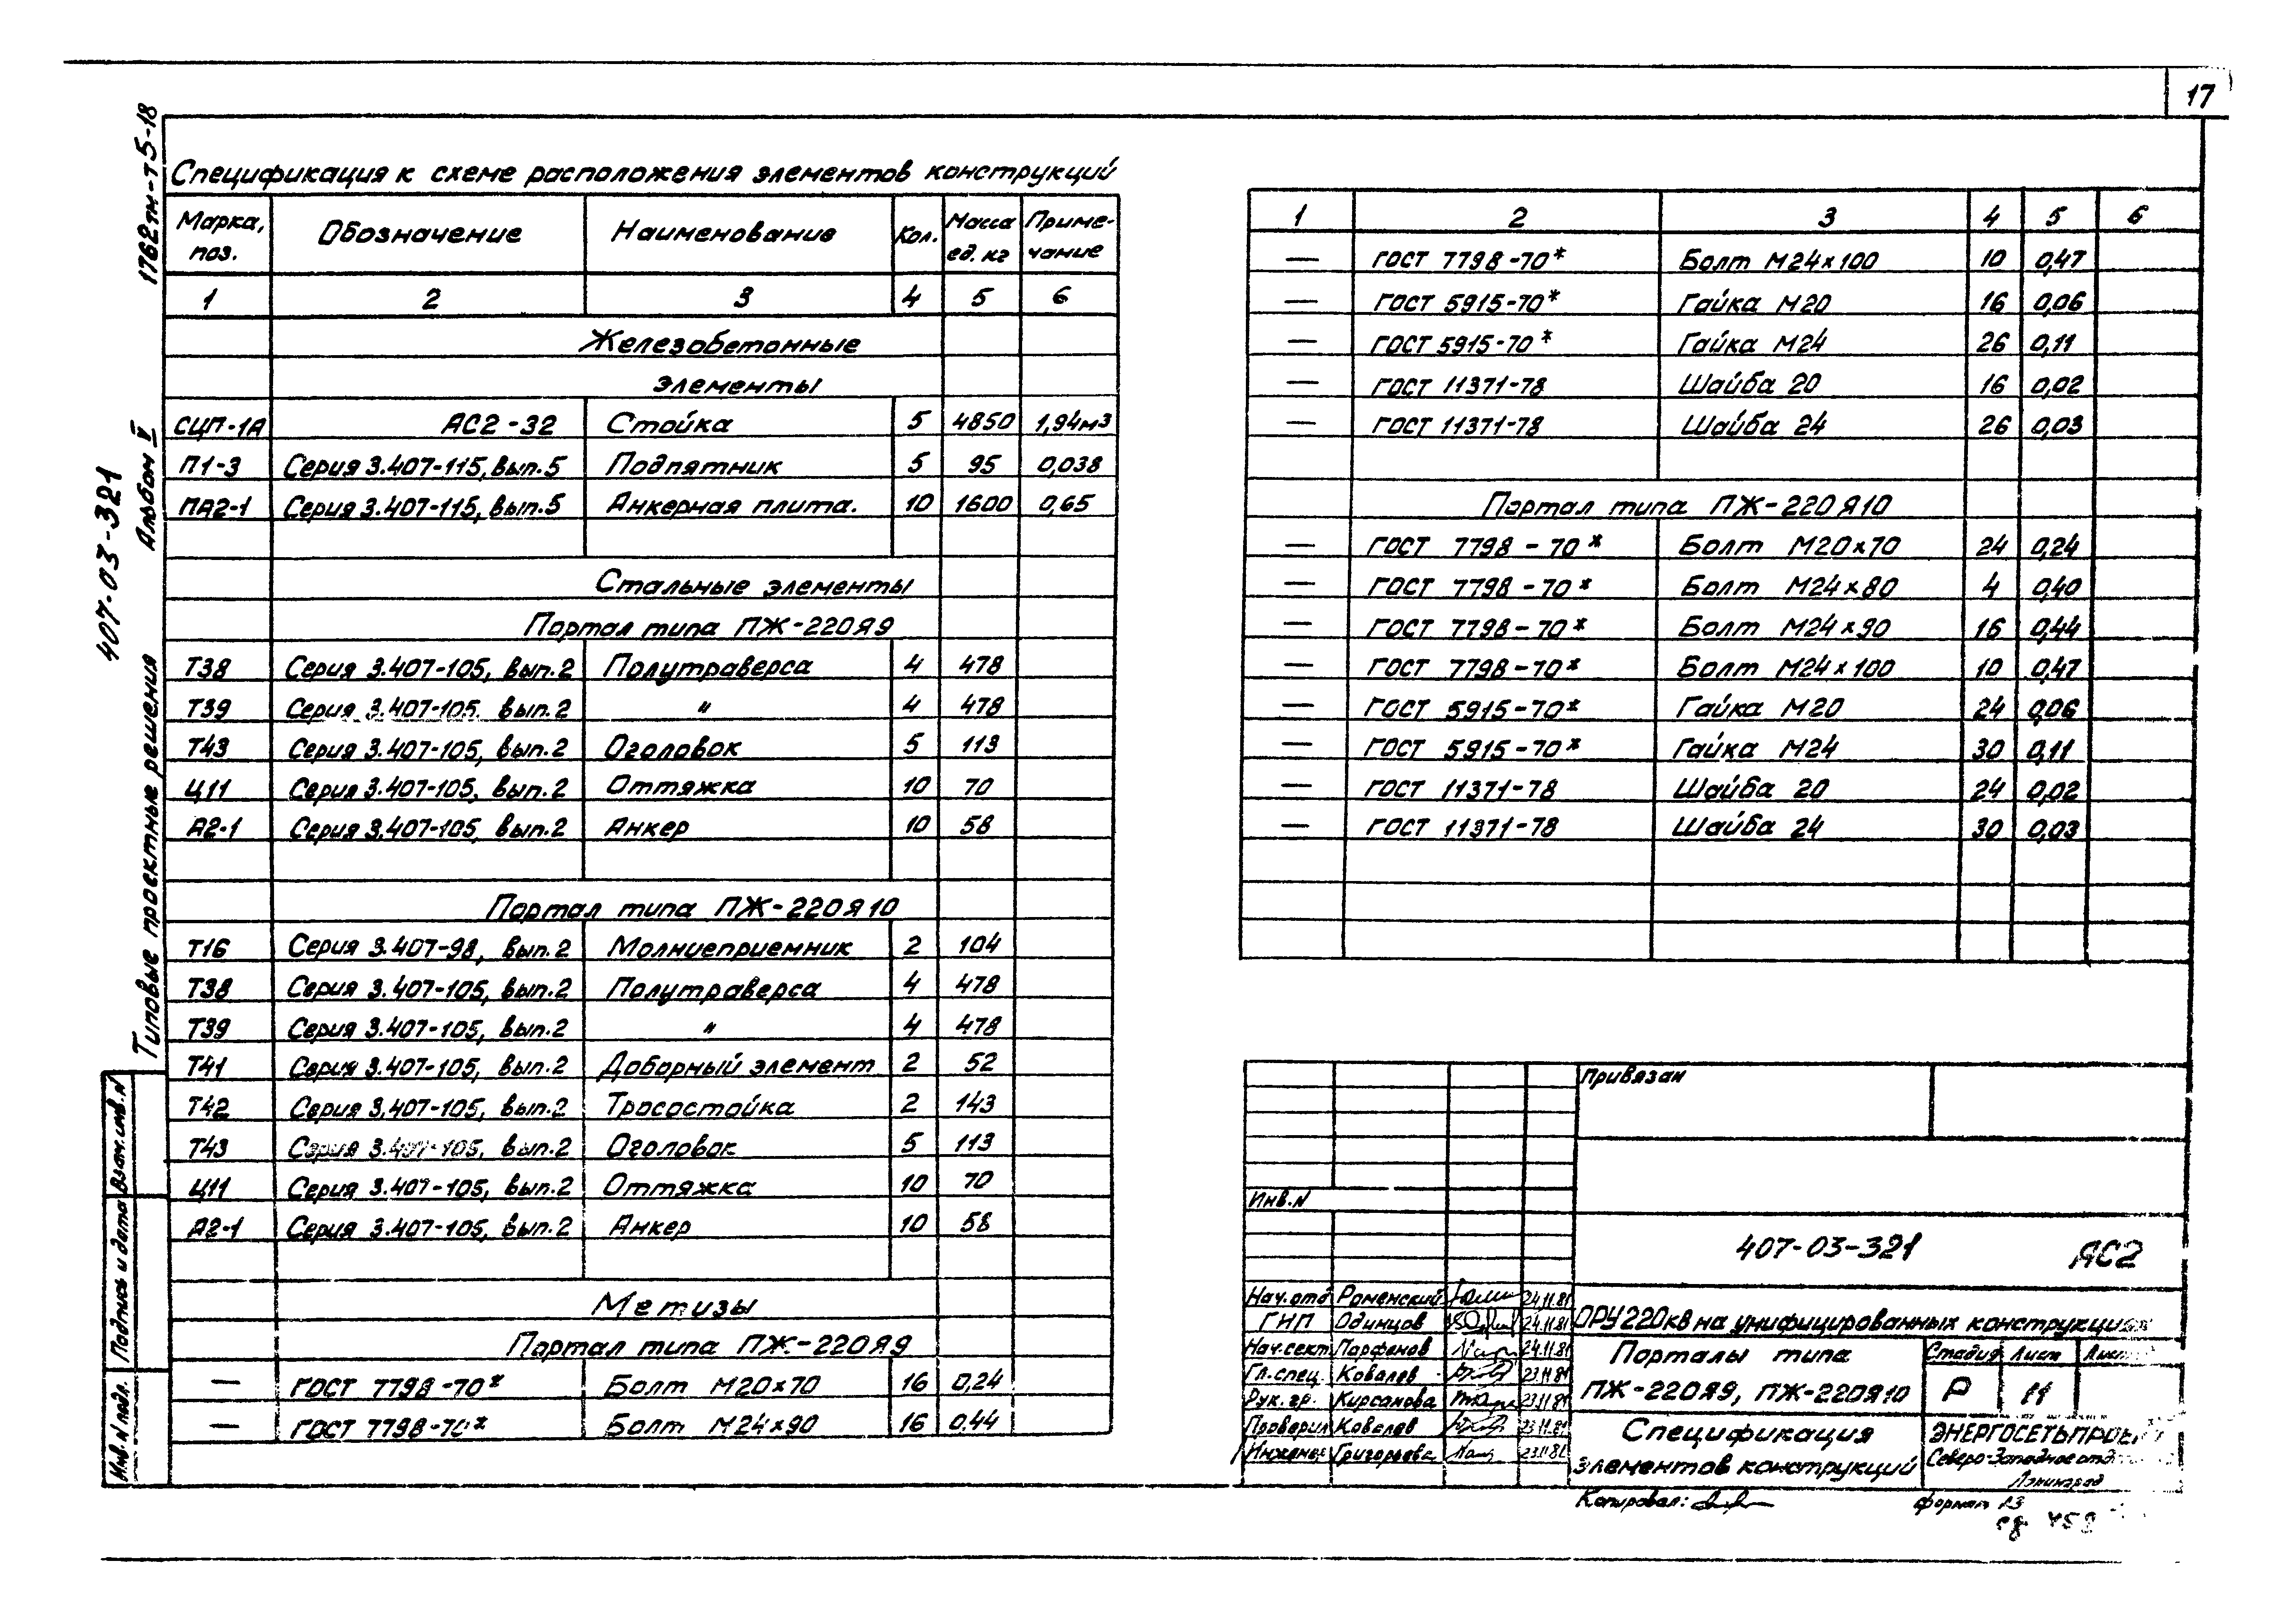 17
1762тм-т5-18
407-03-321
Альбом V
Типовые проектные решения
Взам.инв.N
Подпись и дата
Инв.N подл.
Спецификация к схеме расположения элементов конструкций
Марка, поз. Обозначение Наименование Кол. Масса ед. кг Примечание
1 2 3 4 5 6
Железобетонные
элементы
СЦП-1А АС2-32 Стойка 5 4850 1,94м3
П1-3 Серия 3.407-115, вып.5 Подпятник 5 95 0,038
ПА2-1 Серия 3.407-115, вып.5 Анкерная плита. 10 1600 0,65
Стальные элементы
Портал типа ПЖ-220Я9
Т38 Серия 3.407-105, вып.2 Полутраверса 4 478
Т39 Серия 3.407-105, вып.2 " 4 478
Т43 Серия 3.407-105, вып.2 Оголовок 5 113
Ц11 Серия 3.407-105, вып.2 Оттяжка 10 70
А2-1 Серия 3.407-105, вып.2 Анкер 10 58
Портал типа ПЖ-220Я10
Т16 Серия 3.407-98, вып.2 Молниеприемник 2 104
Т38 Серия 3.407-105, вып.2 Полутраверса 4 478
Т39 Серия 3.407-105, вып.2 " 4 478
Т41 Серия 3.407-105, вып.2 Доборный элемент 2 52
Т42 Серия 3.407-105, вып.2 Тросостойка 2 143
Т43 Серия 3.407-105, вып.2 Оголовок 5 113
Ц11 Серия 3.407-105, вып.2 Оттяжка 10 70
А2-1 Серия 3.407-105, вып.2 Анкер 10 58
Метизы
Портал типа ПЖ-220Я9
— ГОСТ 7798-70* Болт М20х70 16 0,24
— ГОСТ 7798-70* Болт М24х90 16 0,44
1 2 3 4 5 6
— ГОСТ 7798-70* Болт М24х100 10 0,47
— ГОСТ 5915-70* Гайка М20 16 0,06
— ГОСТ 5915-70* Гайка М24 26 0,11
— ГОСТ 11371-78 Шайба 20 16 0,02
— ГОСТ 11371-78 Шайба 24 26 0,03
Портал типа ПЖ-220Я10
— ГОСТ 7798-70* Болт М20х70 24 0,24
— ГОСТ 7798-70* Болт М24х80 4 0,40
— ГОСТ 7798-70* Болт М24х90 16 0,44
— ГОСТ 7798-70* Болт М24х100 10 0,47
— ГОСТ 5915-70* Гайка М20 24 0,06
— ГОСТ 5915-70* Гайка М24 30 0,11
— ГОСТ 11371-78 Шайба 20 24 0,02
— ГОСТ 11371-78 Шайба 24 30 0,03
Привязан
Инв.N
407-03-321 АС2
Нач.отд Роменский 24.11.81
ГИП Одинцов 24.11.81
Нач.сект Парфенов 24.11.81
Гл.спец. Ковалев 23.11.81
Рук.гр. Кирсанова 23.11.81
Проверил Ковалев 23.11.81
Инженер Григорьева 23.11.81
ОРУ 220кв на унифицированных конструкциях
Порталы типа
ПЖ-220Я9, ПЖ-220Я10
Стадия Лист
Р 11
Спецификация
элементов конструкций
ЭНЕРГОСЕТЬПРОЕКТ
Северо-Западное отд
Ленинград
Копировал:
формат А3